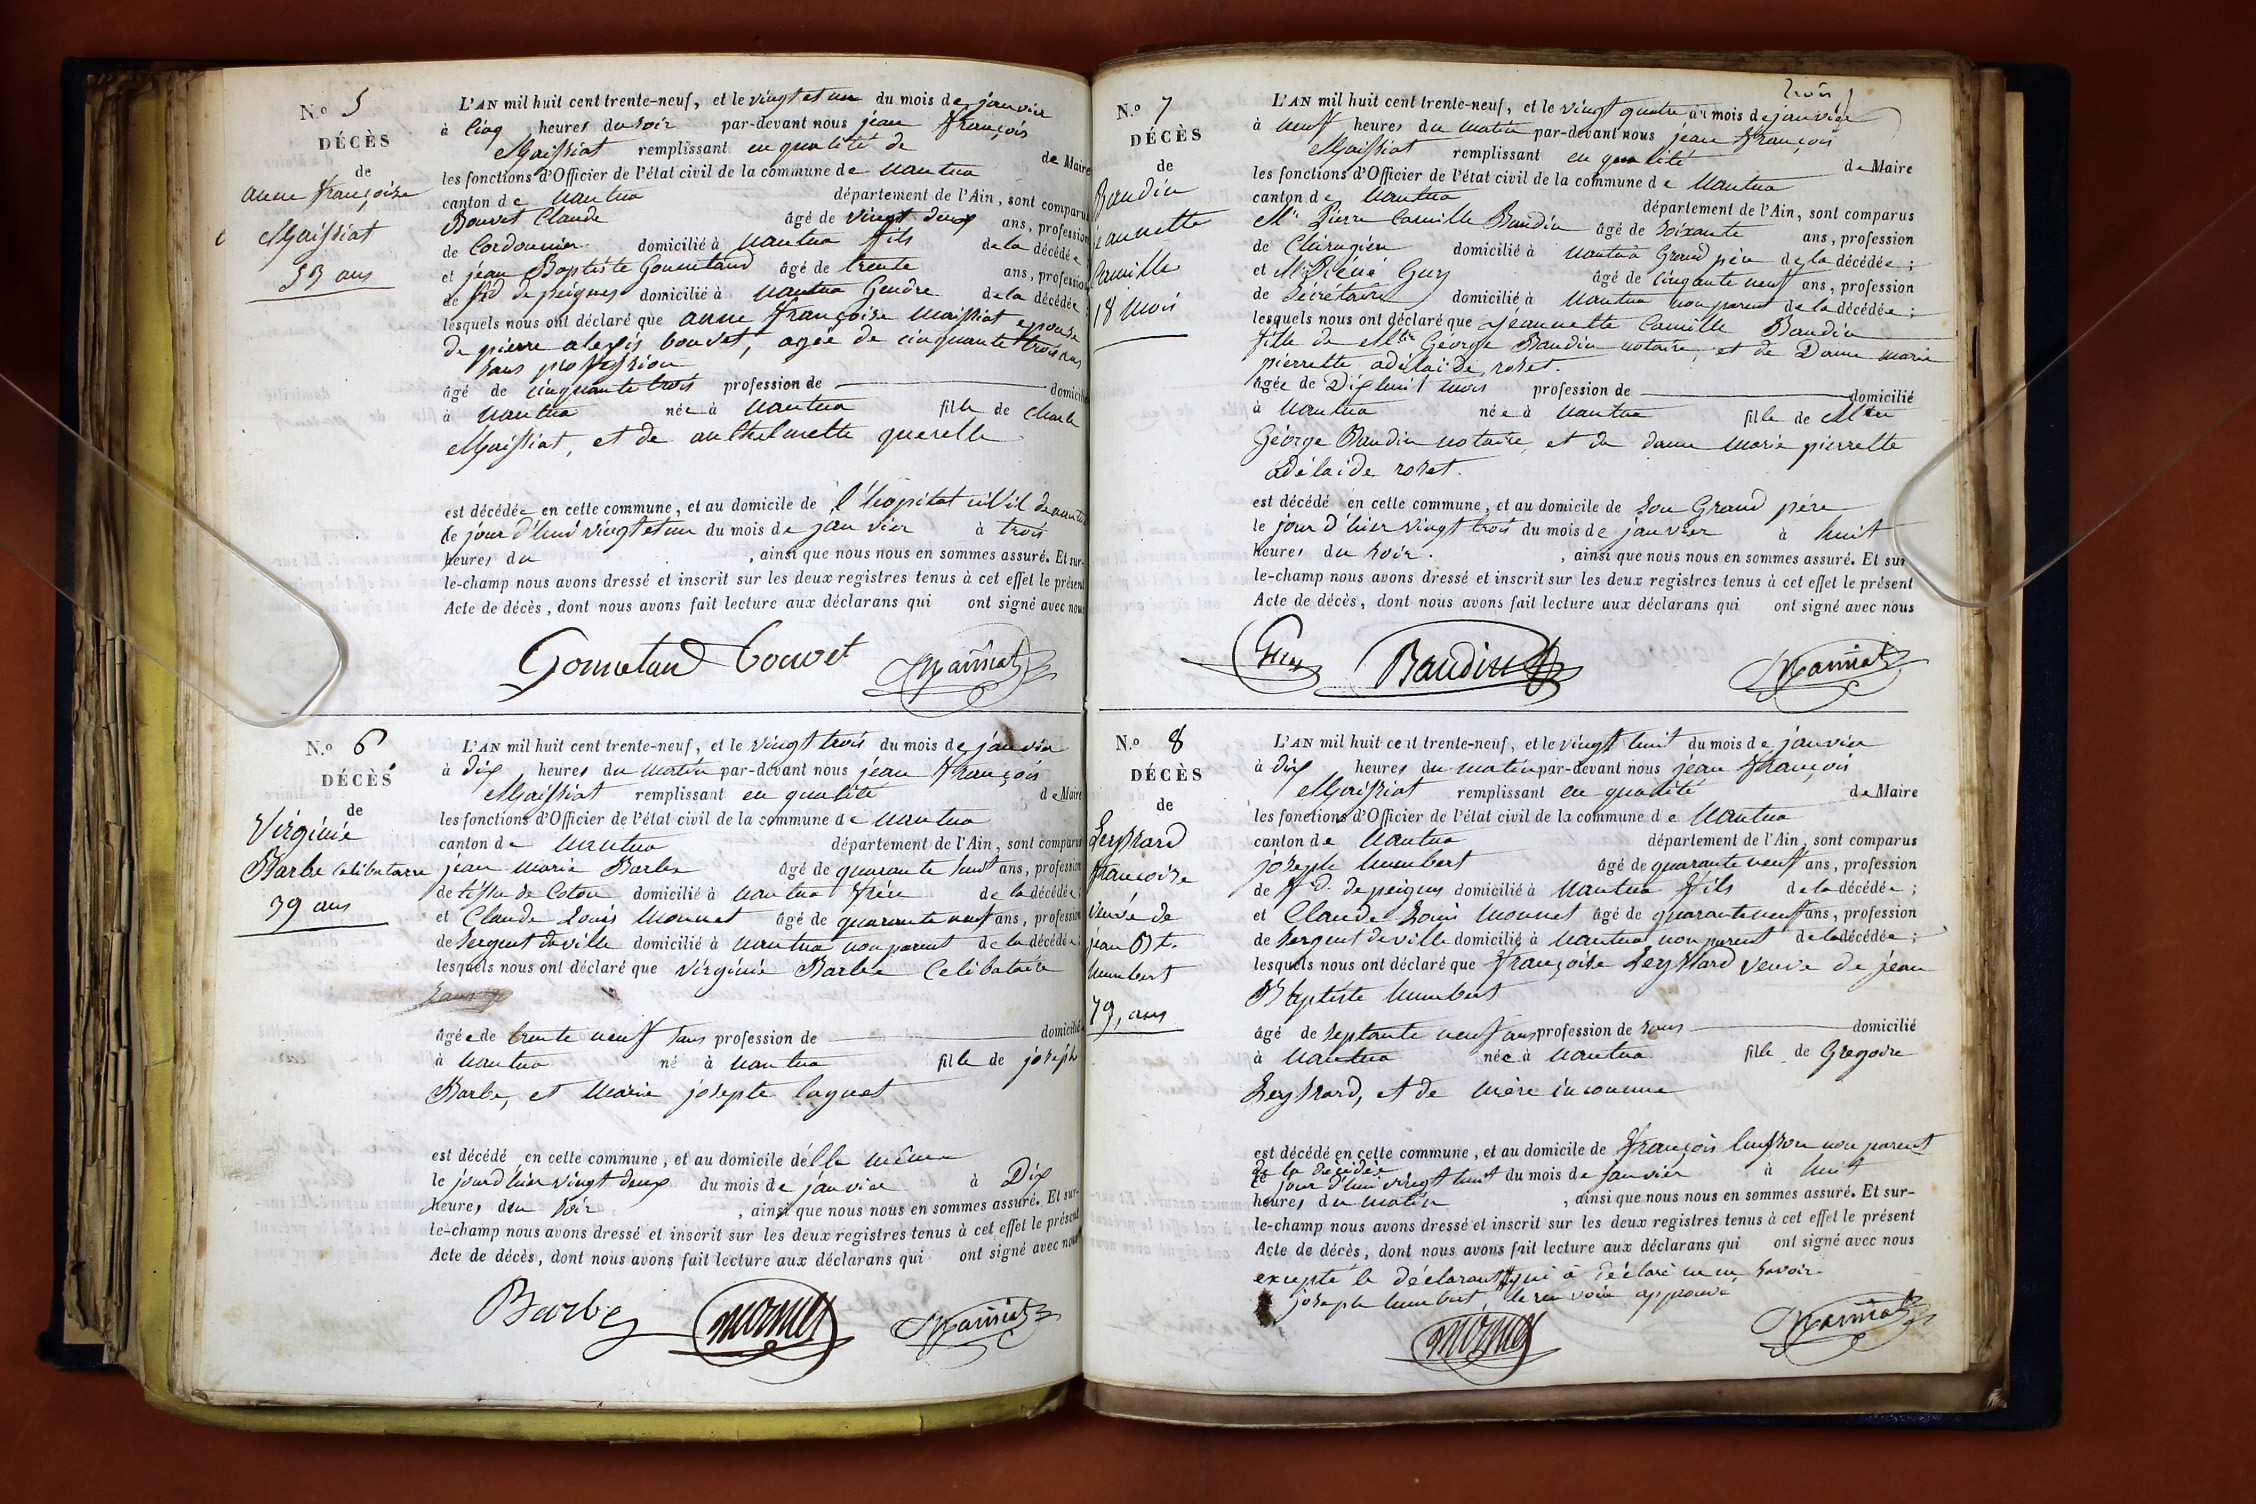 N.o 5
DÉCÈS
de
anne françoise
Maissiat
53 ans
L'AN mil huit cent trente-neuf, et le vingt et un du mois de janvier
à cinq heures du soir par-devant nous jean françois
Maissiat remplissant en qualité de de Maire
les fonctions d'Officier de l'état civil de la commune de nantua
canton de nantua département de l'Ain, sont comparus
Bouvet Claude âgé de vingt deux ans, profession
de Cordonnier domicilié à nantua fils de la décédée
et jean Baptiste Gounetand âgé de trente ans, profession
de fd de peignes domicilié à nantua Gendre de la décédée
lesquels nous ont déclaré que anne françoise maissiat epouse
de pierre alexis bouvet, agée de cinquante trois ans
sans profession
âgé de cinquante trois profession de domicilié
à nantua née à nantua fille de Charle
Maissiat, et de anthelmette querelle
est décédée en cette commune, et au domicile de l'hopital civil de nantua
le jour d'hui vingt et un du mois de janvier à trois
heures du , ainsi que nous nous en sommes assuré. Et sur-
le-champ nous avons dressé et inscrit sur les deux registres tenus à cet effet le présent
Acte de décès, dont nous avons fait lecture aux déclarans qui ont signé avec nous
bouvet Maissiat
N.o 6
DÉCÈS
de
Virginie
Barbe Celibataire
39 ans
L'AN mil huit cent trente-neuf, et le vingt trois du mois de janvier
à dix heures du matin par-devant nous jean françois
Maissiat remplissant en qualité de Maire
les fonctions d'Officier de l'état civil de la commune de nantua
canton de nantua département de l'Ain, sont comparus
jean marie Barbe âgé de quarante huit ans, profession
de tissu de Coton domicilié à nantua frère de la décédée;
et Claude Louis Monnet âgé de quarante neuf ans, profession
de Sergent de ville domicilié à nantua non parent de la décédée;
lesquels nous ont déclaré que Virginie Barbe Celibataire
sans
âgée de trente neuf sans profession de domicilié
à nantua né à nantua fille de joseph
Barbe, et Marie josepte laguet
est décédé en cette commune, et au domicile d'elle même
le jour d'hier vingt deux du mois de janvier à Dix
heures du soir , ainsi que nous nous en sommes assuré. Et sur-
le-champ nous avons dressé et inscrit sur les deux registres tenus à cet effet le présent
Acte de décès, dont nous avons fait lecture aux déclarans qui ont signé avec nous
Barbe monnet Maissiat
trois
N.o 7
DÉCÈS
de
Baudin
jeannette
Camille
18 mois
L'AN mil huit cent trente-neuf, et le vingt quatre du mois de janvier
à neuf heures du matin par-devant nous jean françois
Maissiat remplissant en qualité de Maire
les fonctions d'Officier de l'état civil de la commune de Nantua
canton de Nantua département de l'Ain, sont comparus
Mr Pierre Camille Baudin âgé de soixante ans, profession
de Chirugien domicilié à nantua Grand père de la décédée;
et Mr Réné Guy âgé de cinquante neuf ans, profession
de Sécrétaire domicilié à Nantua non parent de la décédée;
lesquels nous ont déclaré que jeannette Camille Baudin
fille de Mtre George Baudin notaire, et de Dame marie
pierrette adélaïde roset.
âgée de Dix huit mois profession de domicilié
à Nantua née à nantua fille de Mtre
George Baudin notaire, et de dame Marie pierrette
adélaide roset.
est décédé en cette commune, et au domicile de son Grand père
le jour d'hier vingt trois du mois de janvier à huit
heures du soir. , ainsi que nous nous en sommes assuré. Et sur
le-champ nous avons dressé et inscrit sur les deux registres tenus à cet effet le présent
Acte de décès, dont nous avons fait lecture aux déclarans qui ont signé avec nous
Guy Baudin Maissiat
N.o 8
DÉCÈS
de
Leyssard
françoise
veuve de
jean Bte.
humbert
79, ans
L'AN mil huit cent trente-neuf, et le vingt huit du mois de janvier
à dix heures du matin par-devant nous jean françois
Maissiat remplissant en qualité de Maire
les fonctions d'Officier de l'état civil de la commune de Nantua
canton de Nantua département de l'Ain, sont comparus
joseph humbert âgé de quarante neuf ans, profession
de fd. de peignes domicilié à Nantua fils de la décédée;
et Claude Louis Monnet âgé de quarante neuf ans, profession
de Sergent de ville domicilié à Nantua non parent de la décédée;
lesquels nous ont déclaré que françoise Leyssard veuve de jean
Baptiste humbert
âgé de septante neuf ans profession de sans domicilié
à Nantua née à nantua fille de Gregoire
Leyssard, et de mère inconnue
est décédé en cette commune, et au domicile de françois non parent
de la décédée
le jour d'hui vingt huit du mois de janvier à huit
heures du matin , ainsi que nous nous en sommes assuré. Et sur-
le-champ nous avons dressé et inscrit sur les deux registres tenus à cet effet le présent
Acte de décès, dont nous avons fait lecture aux déclarans qui ont signé avec nous
excepté le déclarant qui a déclaré ne savoir
joseph humbert, le renvoi approuvé
monnet Maissiat